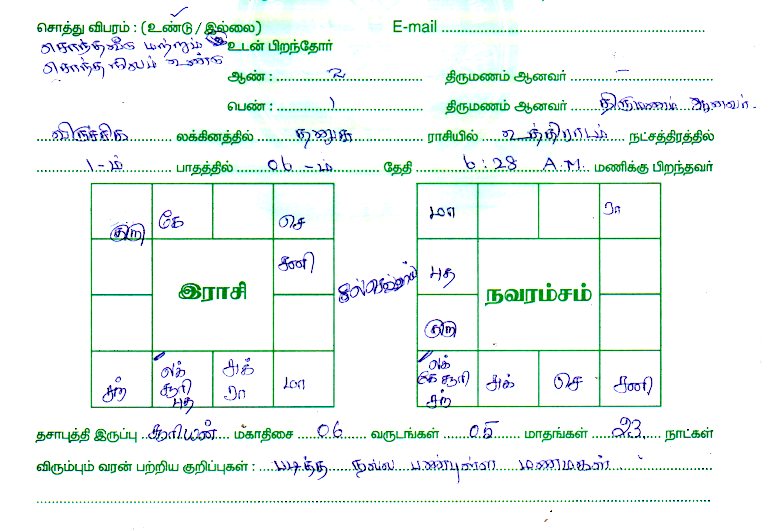 சொத்து விபரம் : (உண்டு / இல்லை) E-mail
சொந்தவீடு மற்றும் உடன் பிறந்தோர்
சொந்த நிலம் உண்டு
ஆண் : 2 திருமணம் ஆனவர் –
பெண் : 1 திருமணம் ஆனவர் திருமணம் ஆனவர்.
விருச்சிக லக்கினத்தில் தனுசு ராசியில் உத்திராடம் நட்சத்திரத்தில்
1-ம் பாதத்தில் 06-ம் தேதி 6:28 A.M. மணிக்கு பிறந்தவர்
குரு கே செ
சனி
இராசி
சந் லக் சூரி புத சுக் ரா மா
மா ரா
புத
நவரம்சம்
குரு
லக் கே சூரி சந் சுக் செ சனி
தசாபுத்தி இருப்பு சூரியன் மகாதிசை 06 வருடங்கள் 05 மாதங்கள் 23 நாட்கள்
விரும்பும் வரன் பற்றிய குறிப்புகள் : படித்த நல்ல பண்புள்ள மணமகள்